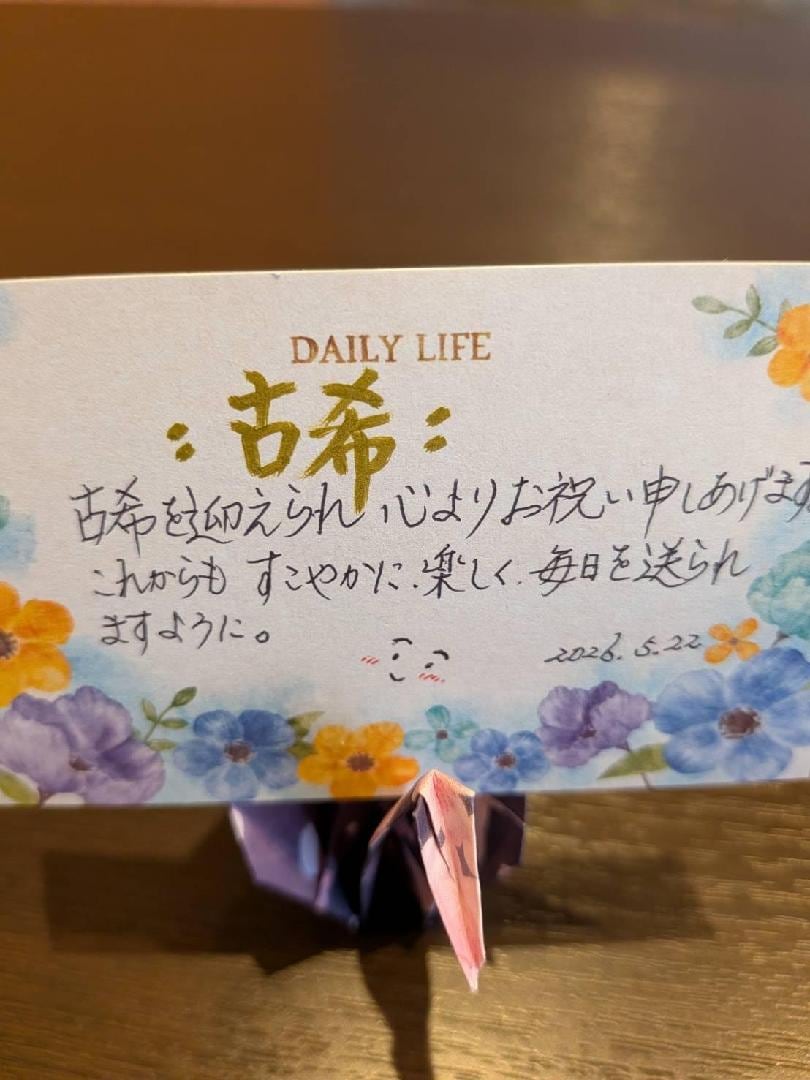 DAILY LIFE
:古希:
古希を迎えられ 心よりお祝い申しあげます
これからも すこやかに、楽しく、毎日を送られ
ますように。
2026.5.22